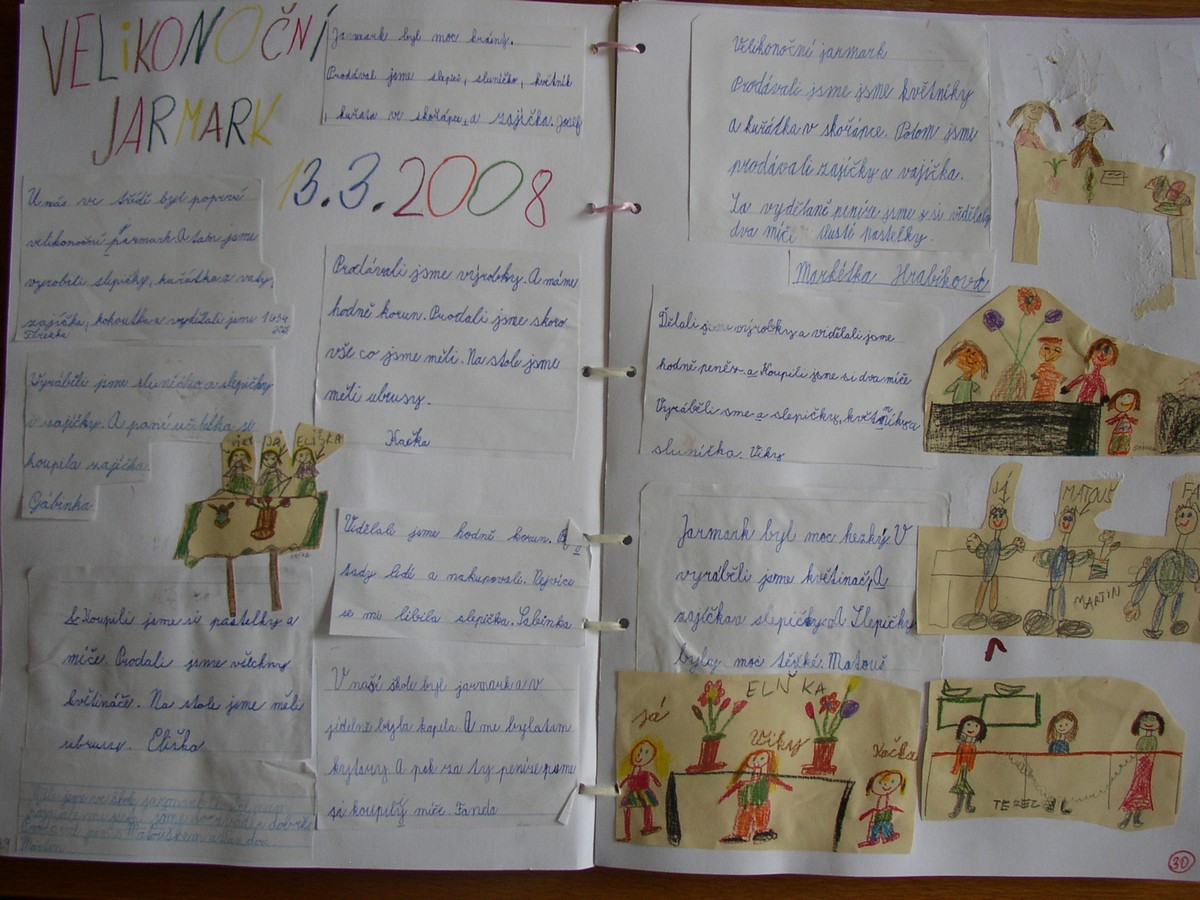 VELIKONOČNÍ
JARMARK
13.3.2008
Jarmark byl moc krásný.
Prodával jsme slepici, sluníčko, květník
, kuřata ve skořápce, a zajíčka. Josef
U nás ve třídě byl poprvé
velikonoční jarmark. A tak jsme
vyrobili slepičky, kuřátka z vaty,
zajíčka, kohoutka a vydělali jsme 1
Terezka
Vyráběli jsme sluníčko a slepičky
a zajíčky. A paní učitelka si
koupila zajíčka.
Gábinka.
VIKI JÁ ELIŠKA
Koupili jsme si pastelky a
míče. Prodali jsme všechny
květináče. Na stole jsme měli
ubrusy. Eliška
jarmark
Martin
Prodávali jsme výrobky. A máme
hodně korun. Prodali jsme skoro
vše co jsme měli. Na stole jsme
měli ubrusy.
Kačka
Vidělali jsme hodně korun. 
tady lidé a nakupovali. Nejvíce
se mi líbila slepička. Sabinka
V naší škole byl jarmark a v
jídelně byyla kapela. A me byyla tam
kytary. A pak za ty peníse pome
si koupitý míč. Fanda
Velikonoční jarmark
Prodávali jsme jsme květníky
a kuřátka v skořápce. Potom jsme
prodávali zajíčky a vajíčka.
Za vydělané peníze jsme si
dva míče tlusté pastelky.
Markétka Hrabíková
Dělali jsme výrobky a vidělali jsme
hodně peněz a Koupili jsme si dva míče
Vyráběli sme a slepičky, květníky a
sluníčka. Viky
Jarmark byl moc hezký. V
vyráběli jsme květináč, A
zajíčka a slepičky. A Slepičky
byly moc těžké. Matouš
JÁ MATOUŠ FA
MARTIN
ELIŠKA
já
Wiky
Kačka
30